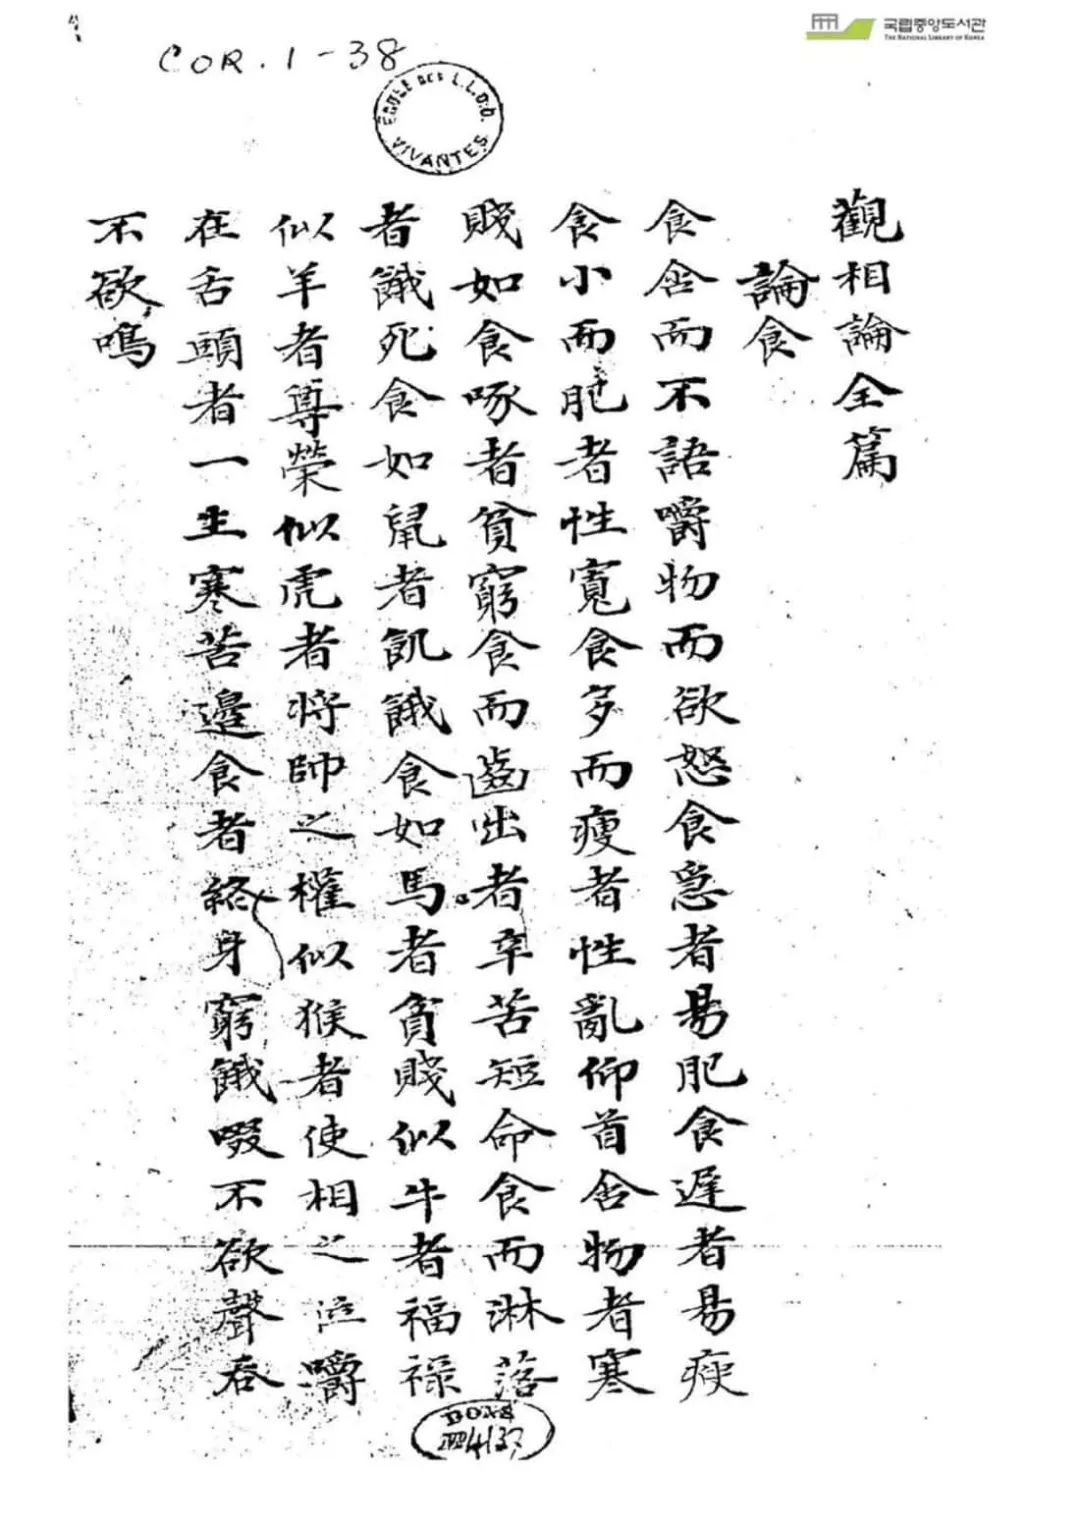 COR. 1-38
국립중앙도서관
THE NATIONAL LIBRARY OF KOREA
ECOLE DES L.L.O.O. VIVANTES
觀相論全篇
論食
食含而不語嚼物而欲怒食急者易肥食遲者易瘐
食小而肥者性寬食多而瘦者性亂仰首含物者寒
賤如食啄者貧窮食而齒出者辛苦短命食而淋落
者餓死食如鼠者飢餓食如馬者貧賤似牛者福祿
似羊者尊榮似虎者將帥之權似猴者使相之位嚼
在舌頭者一生寒苦邉食者終身窮餓啜不欲聲吞
不欲鳴
DONS